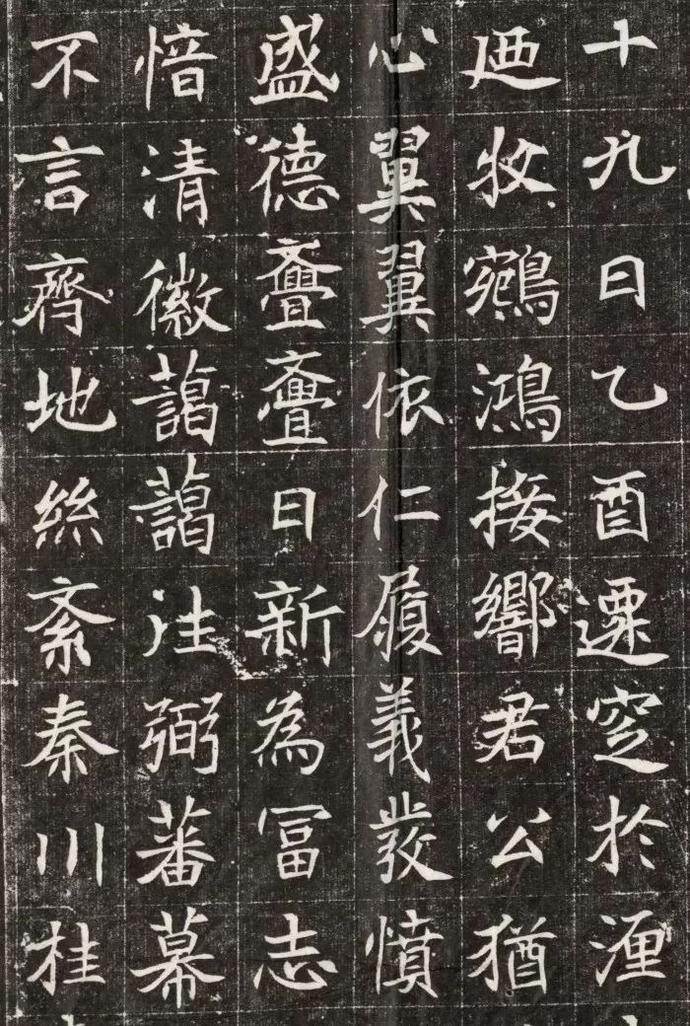 十九日乙酉遷窆於瀍
迺牧鵷鴻接響君公猶
心翼翼依仁履義發憤
盛德亹亹日新為冨志
愔清徽藹藹往弼蕃幕
不言齊地絲紊秦川桂